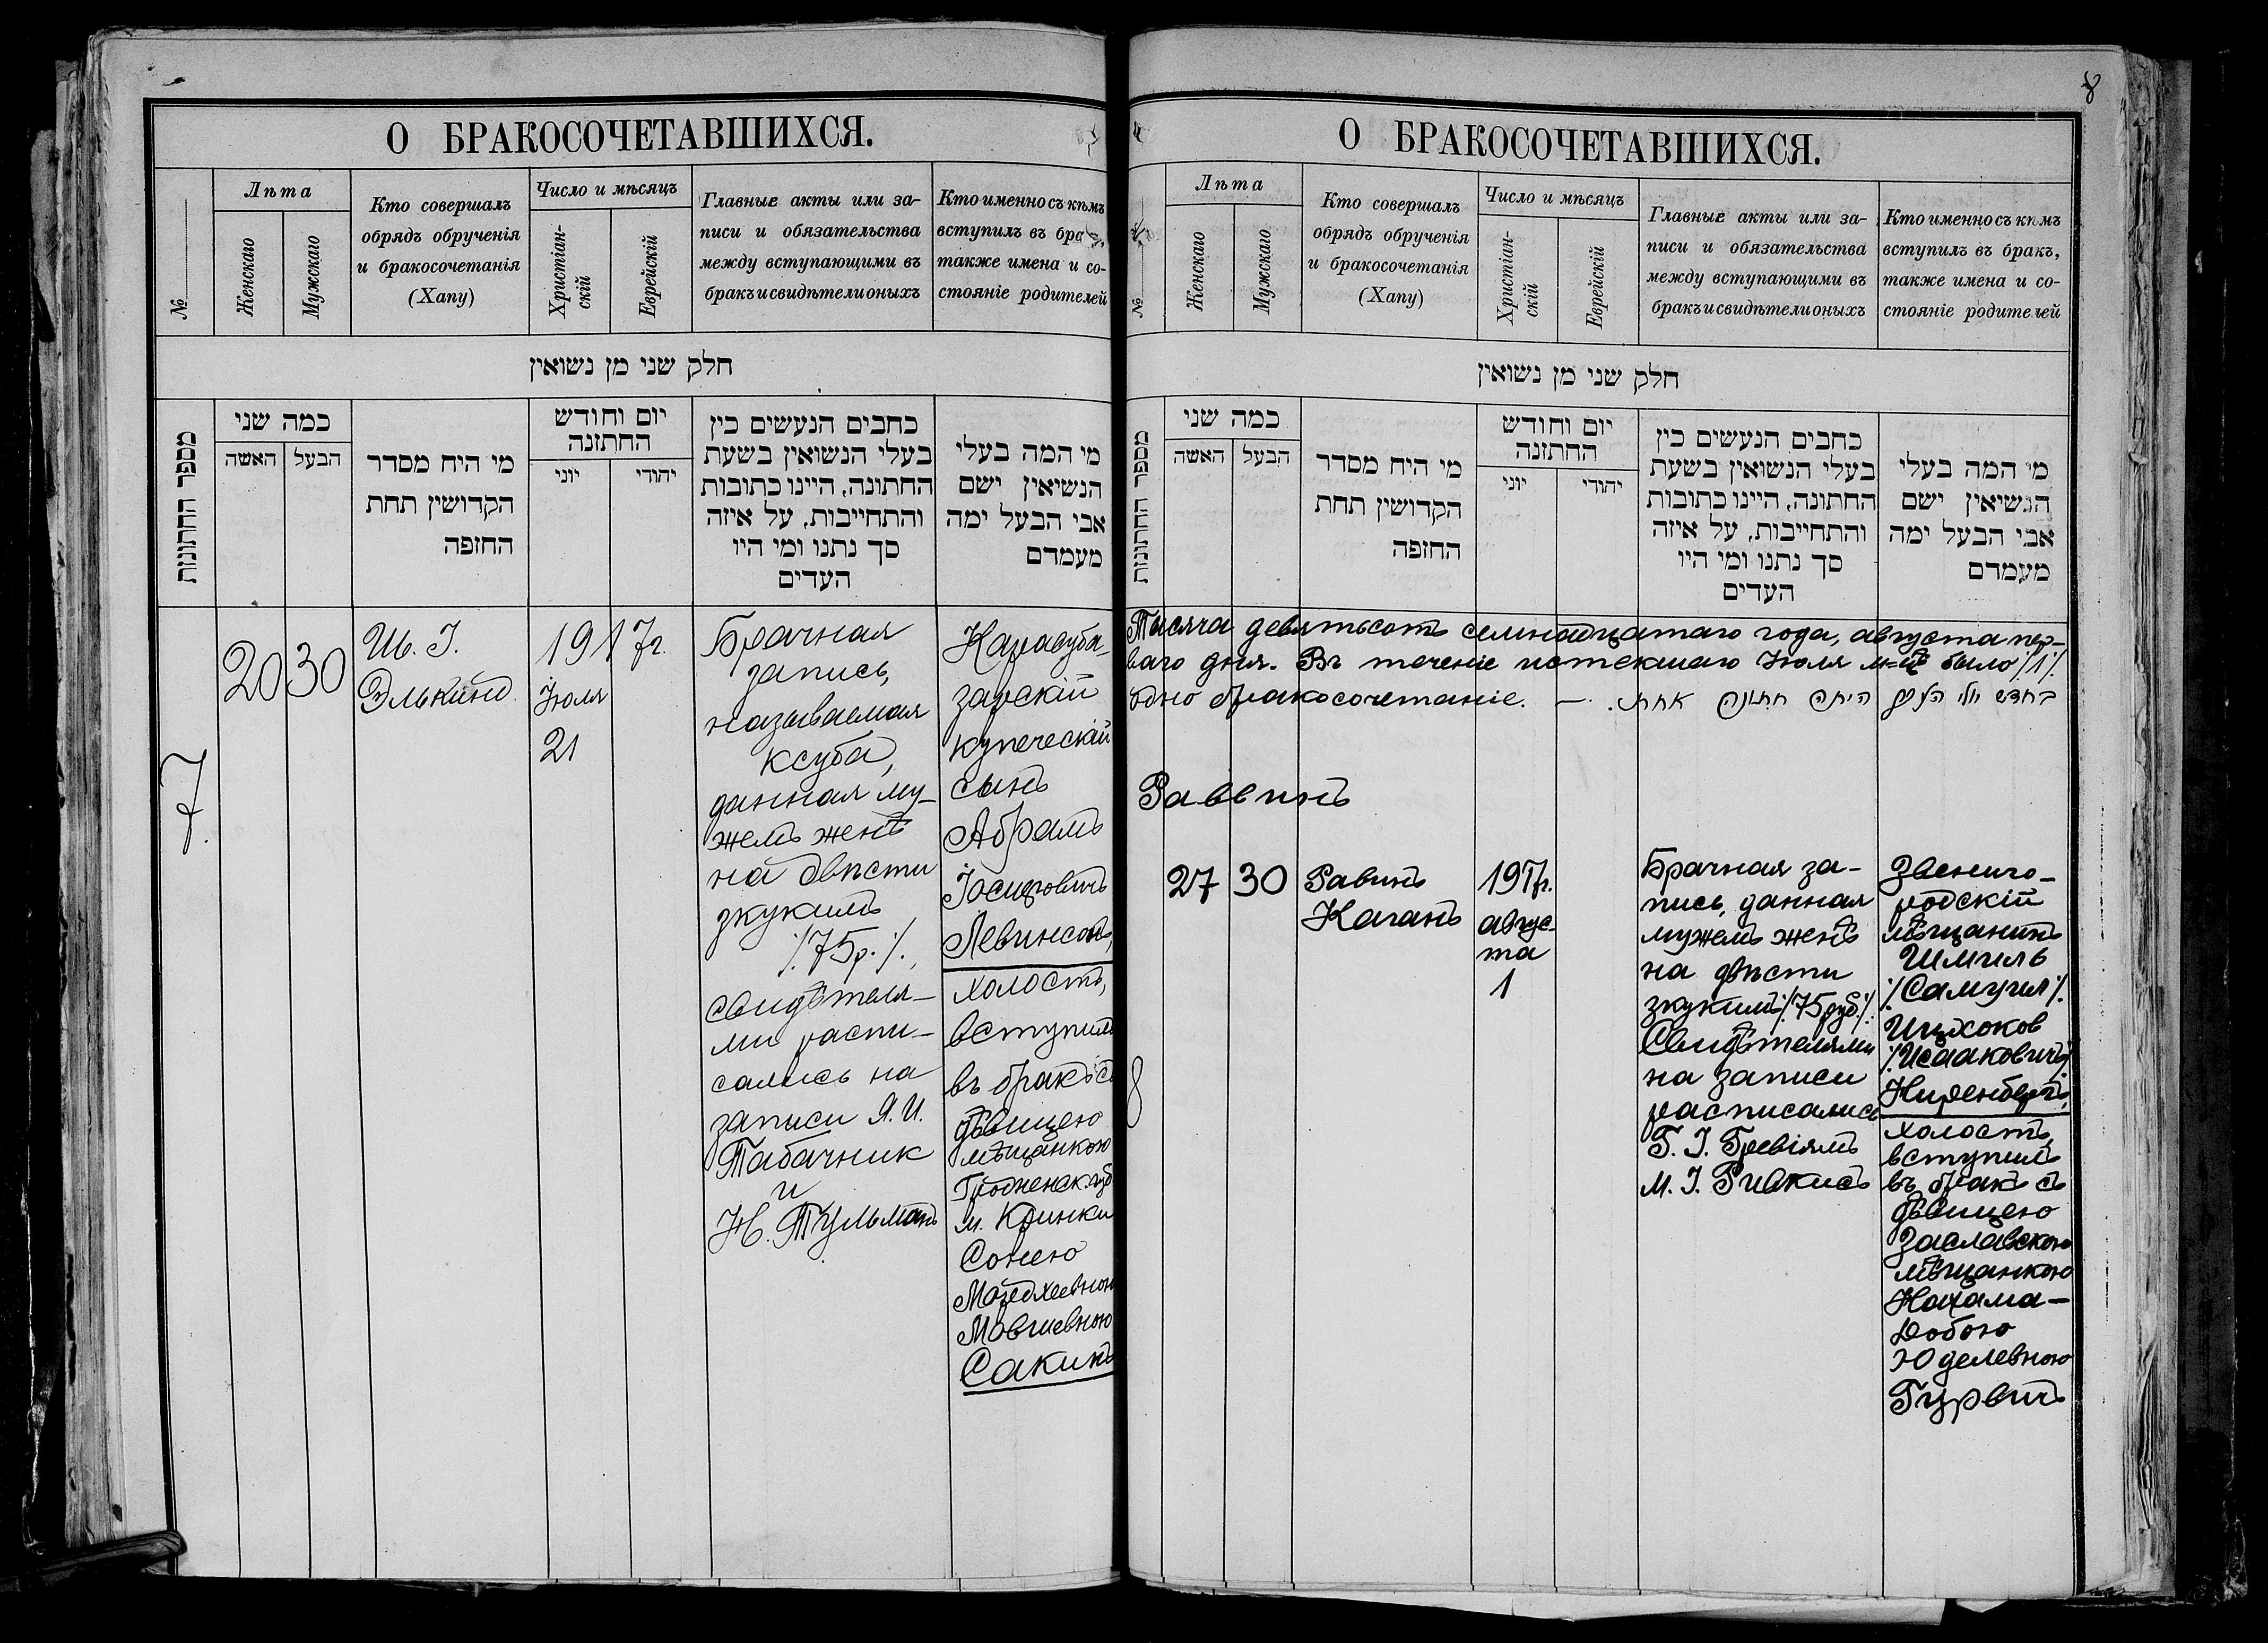 О БРАКОСОЧЕТАВШИХСЯ.
№
Лѣта
Женскаго
Мужскаго
Кто совершалъ
обрядъ обрученія
и бракосочетанія
(Хапу)
Число и мѣсяцъ
Христіан-
скій
Еврейскій
Главные акты или за-
писи и обязательства
между вступающими въ
бракъ и свидѣтели оныхъ
Кто именно съ кѣмъ
вступилъ въ бра
также имена и со-
стояніе родителей
חלק שני מן נשואין
מספר החתונות
כמה שני
האשה
הבעל
מי היה מסדר
הקדושין תחת
החופה
יום וחודש
החתונה
יוני
יהודי
כתבים הנעשים בין
בעלי הנשואין בשעת
החתונה, היינו כתובות
והתחייבות, על איזה
סך נתנו ומי היו
העדים
מי המה בעלי
הנשיאין ישם
אבי הבעל ימה
מעמדם
7.
20
30
Ш. I.
Элькинд.
1917г.
Іюля
21
Брачная
запись,
называемая
ксуба,
данная му-
жемъ женѣ
на двѣсти
зкукимъ
/75р./,
свидѣтеля-
ми распи-
сались на
записи Я. И.
Табачник
и
Н. Тульманъ
Карасуба-
зарскій
купеческій
сынъ
Абрамъ
Іосифовичъ
Левинсонъ,
холостъ,
вступилъ
въ бракъ съ
дѣвицею
мѣщанкою
Гродненск. губ
м. Кринки
Сонею
Мордхеевною
Мовшевною
Сакинъ
8
О БРАКОСОЧЕТАВШИХСЯ.
№
Лѣта
Женскаго
Мужскаго
Кто совершалъ
обрядъ обрученія
и бракосочетанія
(Хапу)
Число и мѣсяцъ
Христіан-
скій
Еврейскій
Главные акты или за-
писи и обязательства
между вступающими въ
бракъ и свидѣтели оныхъ
Кто именно съ кѣмъ
вступилъ въ бракъ,
также имена и со-
стояніе родителей
חלק שני מן נשואין
מספר החתונות
כמה שני
האשה
הבעל
מי היה מסדר
הקדושין תחת
החופה
יום וחודש
החתונה
יוני
יהודי
כתבים הנעשים בין
בעלי הנשואין בשעת
החתונה, היינו כתובות
והתחייבות, על איזה
סך נתנו ומי היו
העדים
מי המה בעלי
הנשיאין ישם
אבי הבעל ימה
מעמדם
Тысяча девятьсотъ семнадцатаго года, августа пер-
ваго дня. Въ теченіе истекшаго Іюля м-цѣ было /1/
одно бракосочетаніе. — בחדש יולי היתה חתונה אחת.
Раввинъ
8
27
30
Равинъ
Каганъ
1917г.
авгус-
та
1
Брачная за-
пись, данная
мужемъ женѣ
на двѣсти
зкукимъ /75 руб/.
Свидѣтелями
на записи
расписались
Г. I. Гревіямъ
М. I. Ривкисъ
Звениго-
родскій
мѣщанинъ
Шмиль
/Самуил/
Ицхоков
/Исааковичъ/
Ниренбергъ,
холостъ,
вступилъ
въ бракъ съ
дѣвицею
Заславскою
мѣщанкою
Нахама-
Добою
Юделевною
Гурвичъ